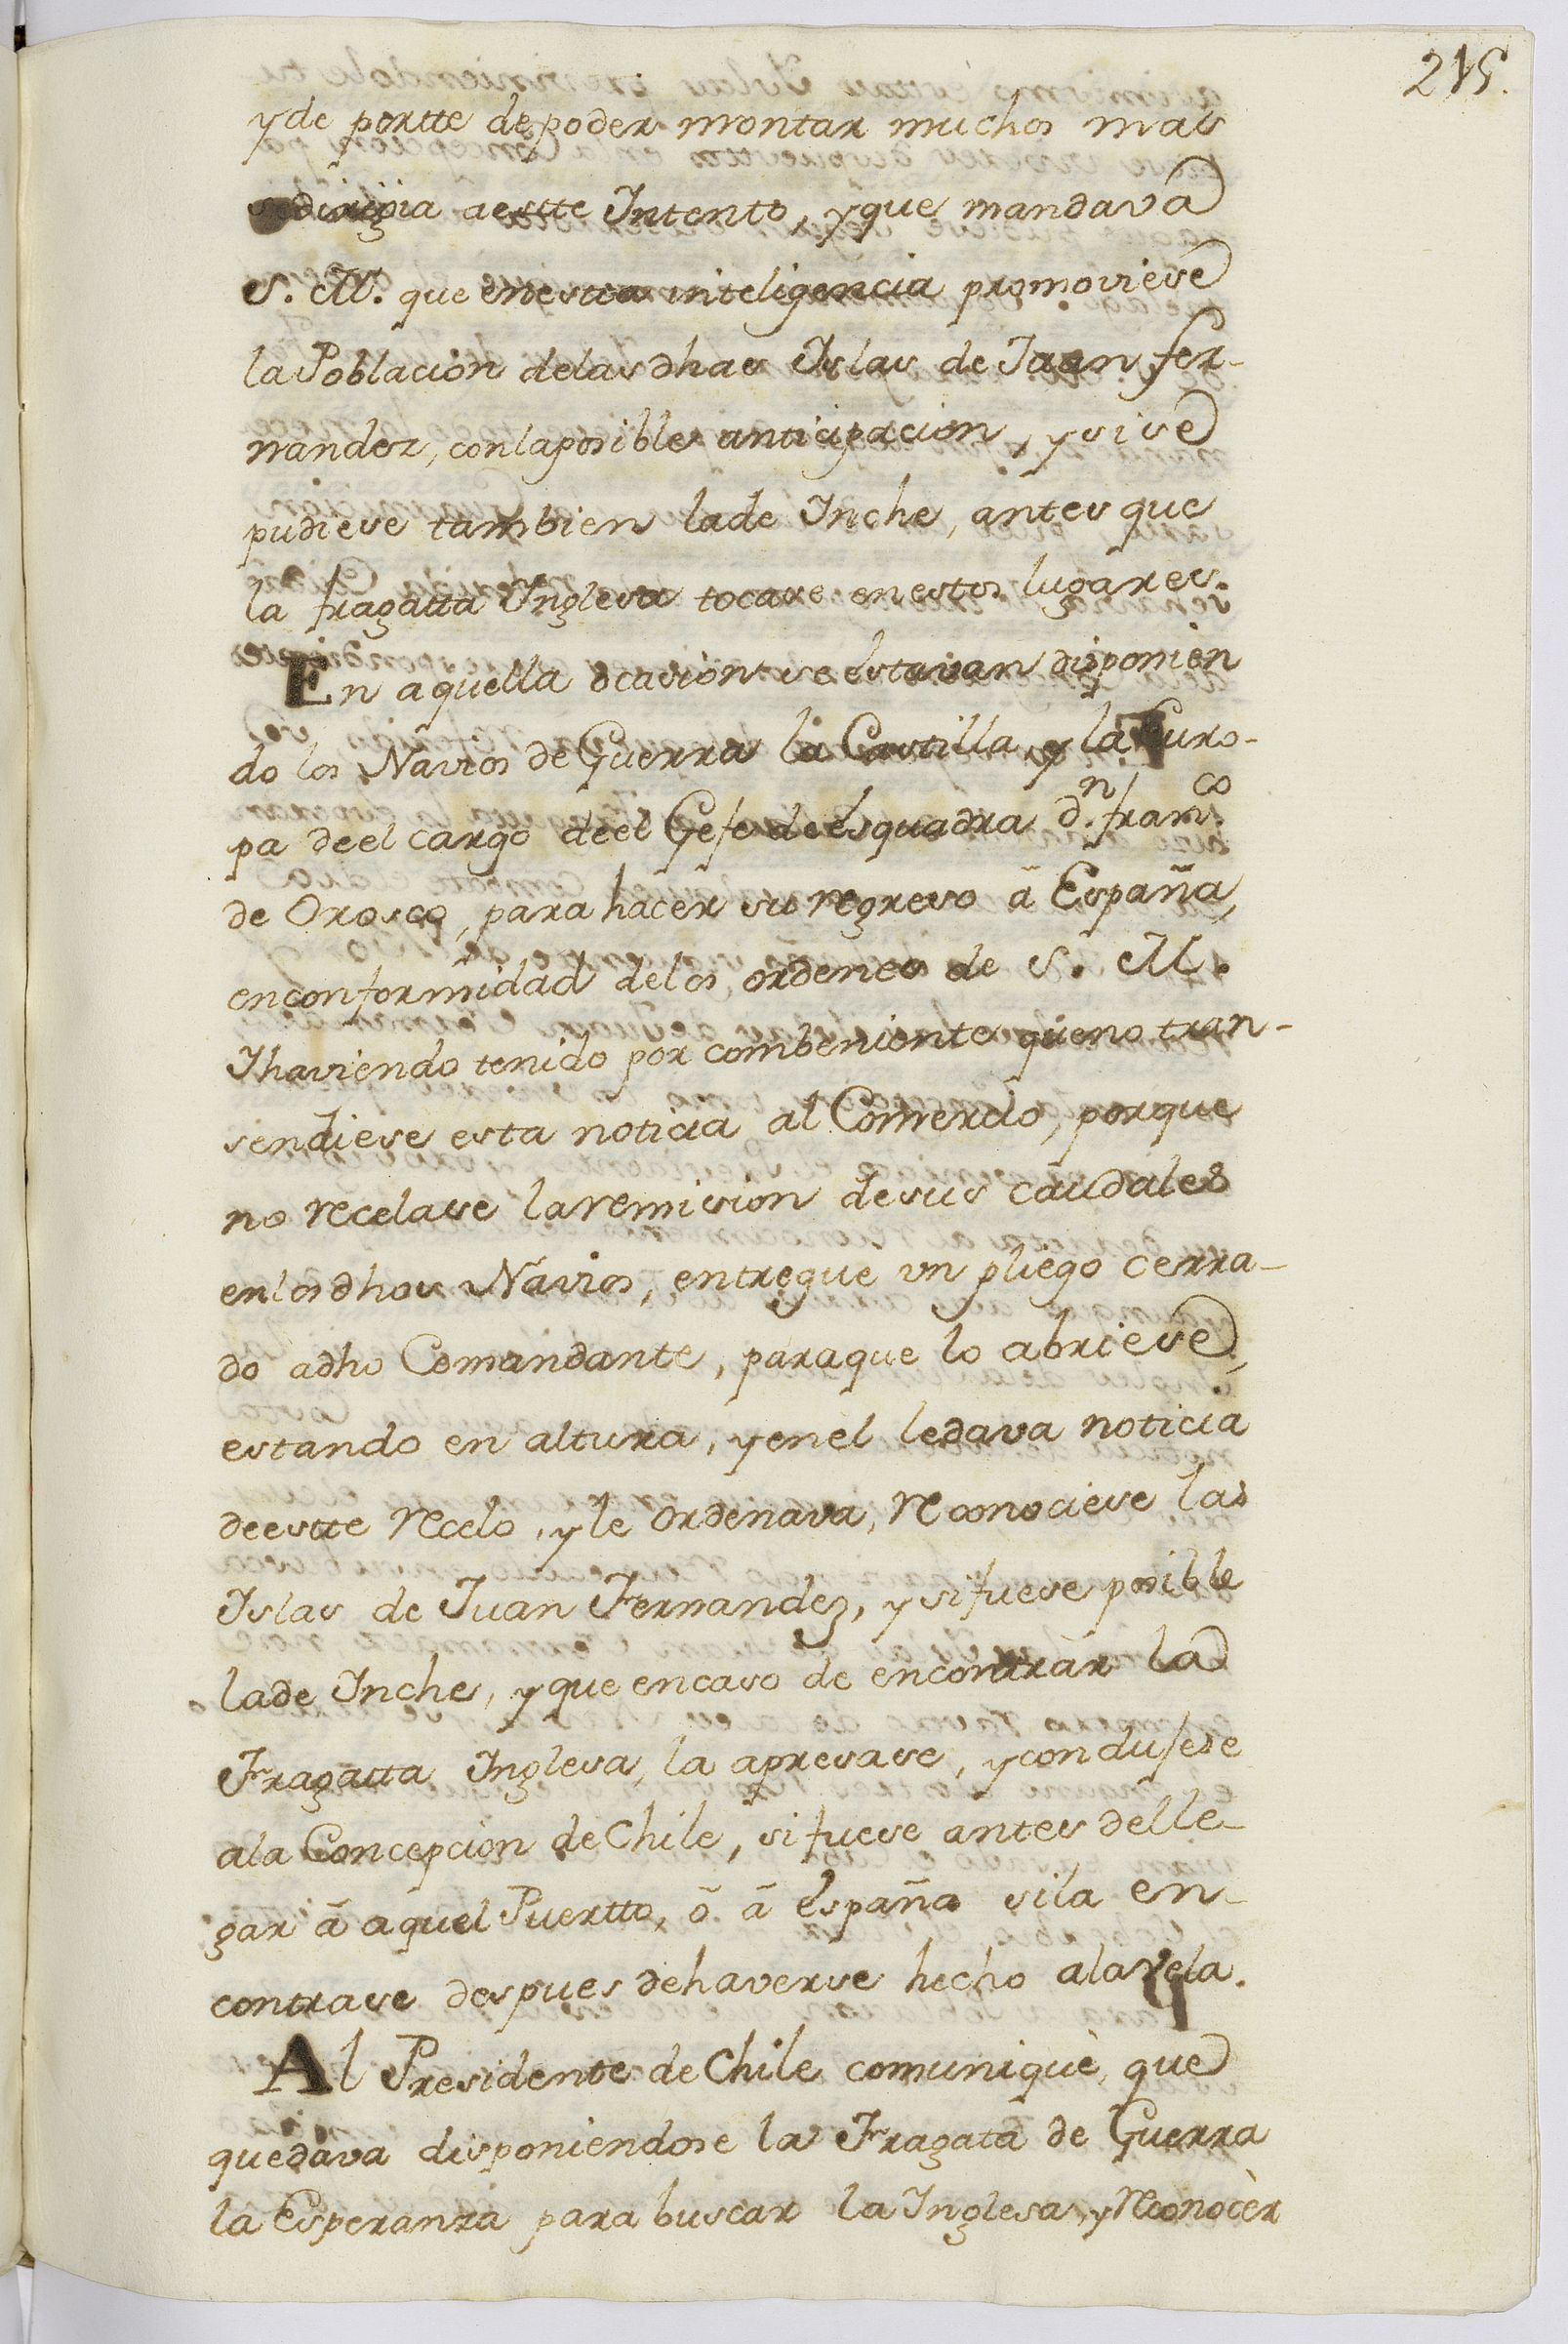 215.
y de portte de poder montar muchos mas
se dirigia a estte Intento, y que mandava
S. M. que en estta inteligencia promoviese
la Poblacion de las dhas Islas de Juan fer-
nandez, con la posible anticipacion, y si se
pudiese tambien la de Inche, antes que
la fragatta Inglesa tocase en estos lugares.
En aquella ocasion se estavan disponien
do los Navios de Guerra la Castilla, y la Euro-
pa de el cargo de el Gefe de esquadra d.n fran.co
de Orosco, para hacer su regreso â España,
en conformidad de los ordenes de S. M.
I haviendo tenido por combeniente que no tran-
sendiese esta noticia al Comercio, porque
no recelase la remision de sus caudales
en los dhos Navios, entregue un pliego cerra-
do a dho Comandante, para que lo abriese,
estando en altura, y en el le dava noticia
de estte recelo, y le ordenava, reconociese las
Islas de Juan Fernandez, y si fuese posible
la de Inche, y que en caso de encontrar la
Fragatta Inglesa, la apresase, y condujese
a la Concepcion de Chile, si fuese antes de lle-
gar â aquel Puertto, ô â España si la en-
contrase despues de haverse hecho a la vela.
Al Presidente de Chile comuniquè, que
quedava disponiendose la Fragata de Guerra
la Esperanza para buscar la Inglesa, y reconocèr